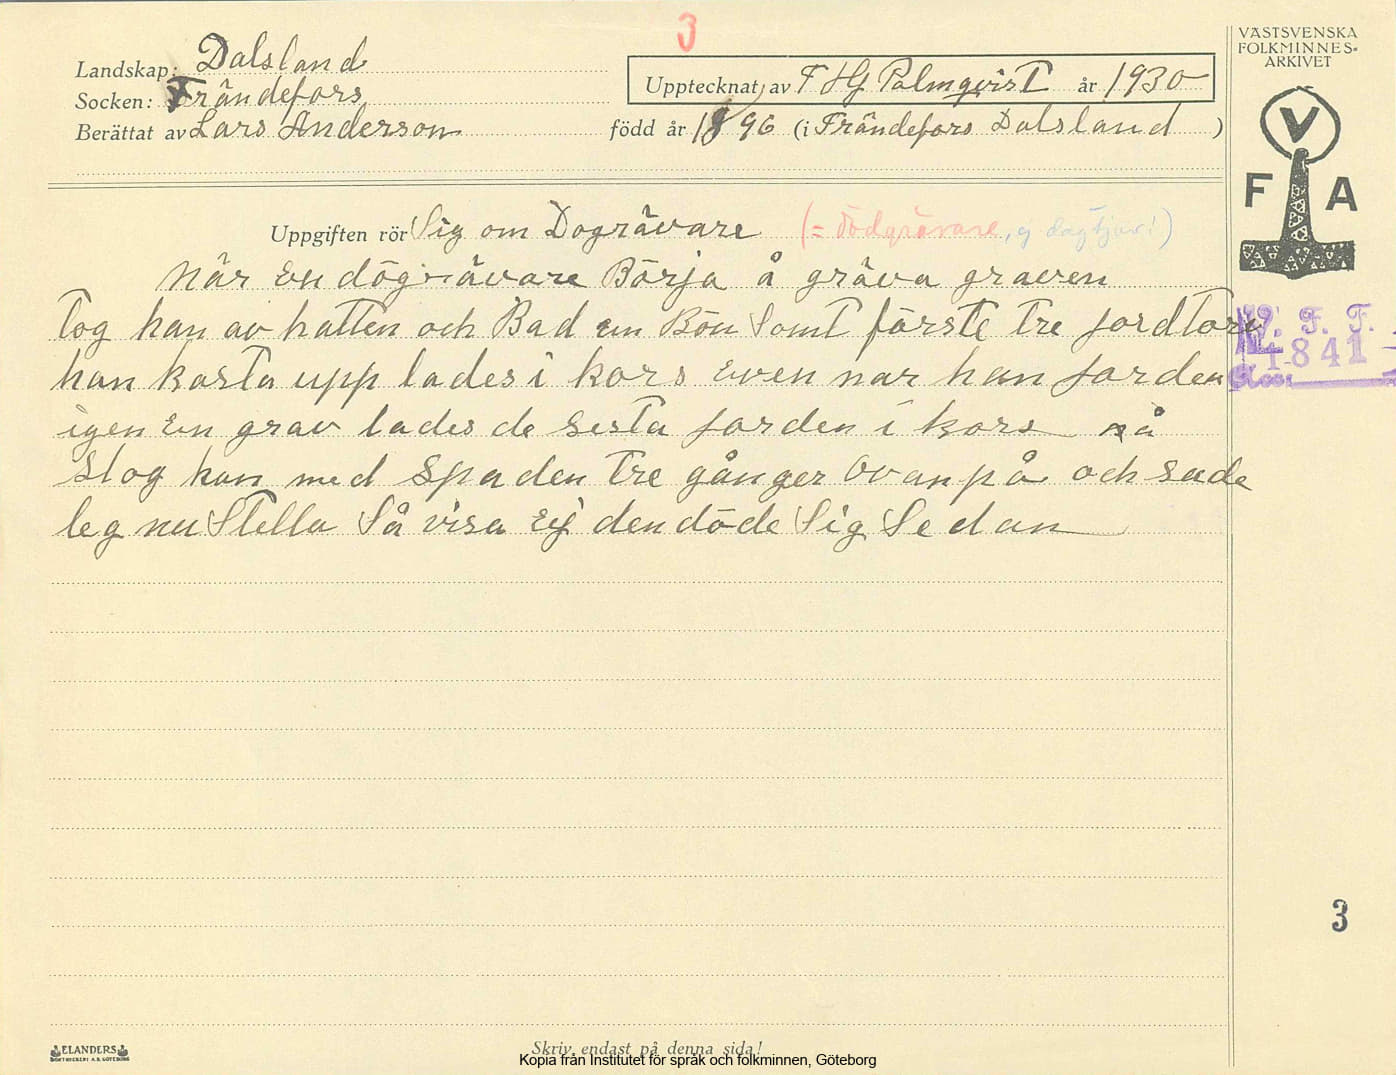 3
VÄSTSVENSKA
FOLKMINNES-
ARKIVET
Landskap: Dalsland
Upptecknat av F HG PalmqvisT år 1930
Socken: Frändefors
Berättat av Lars Anderson född år 1896 (i Frändefors Dalsland )
V
F A
Uppgiften rör Sig om Dogrävare (= dödgrävare, ej dagtjuv!)
När En dögrävare Börja å gräva graven
Tog han av hatten och Bad en Bön SomT förste Tre jordTorv
V. F. F.
1841
han kasta upp lades i kors även når han jorden
igen En grav lades de sesta jorden i kors så
slog han med spaden Tre gånger Ovanpå och sade
leg nu Stella Så visa Ej den döde Sig Sedan
3
ELANDERS
Skriv endast på denna sida!
Kopia från Institutet för språk och folkminnen, Göteborg